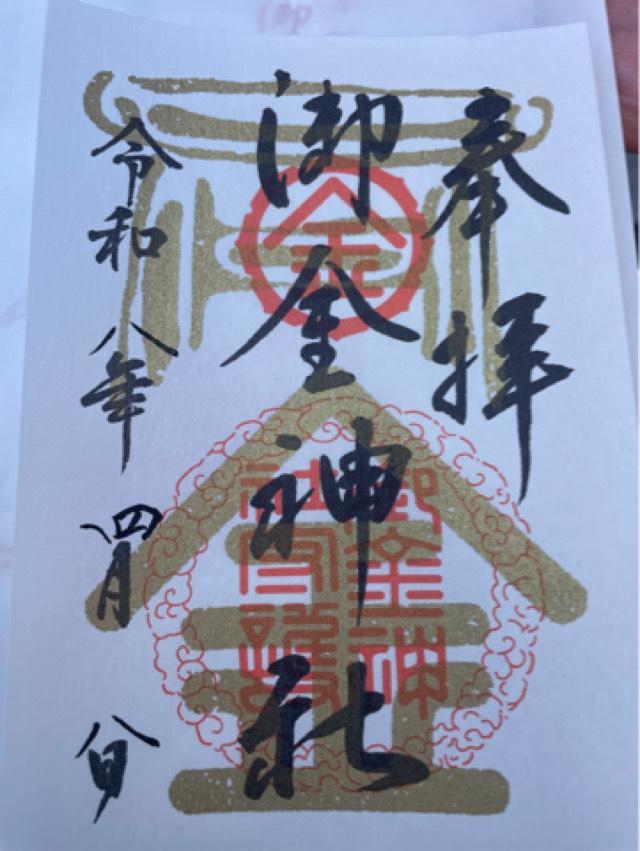 奉拝
御金神社
令和八年四月八日
金
御金神
社守護